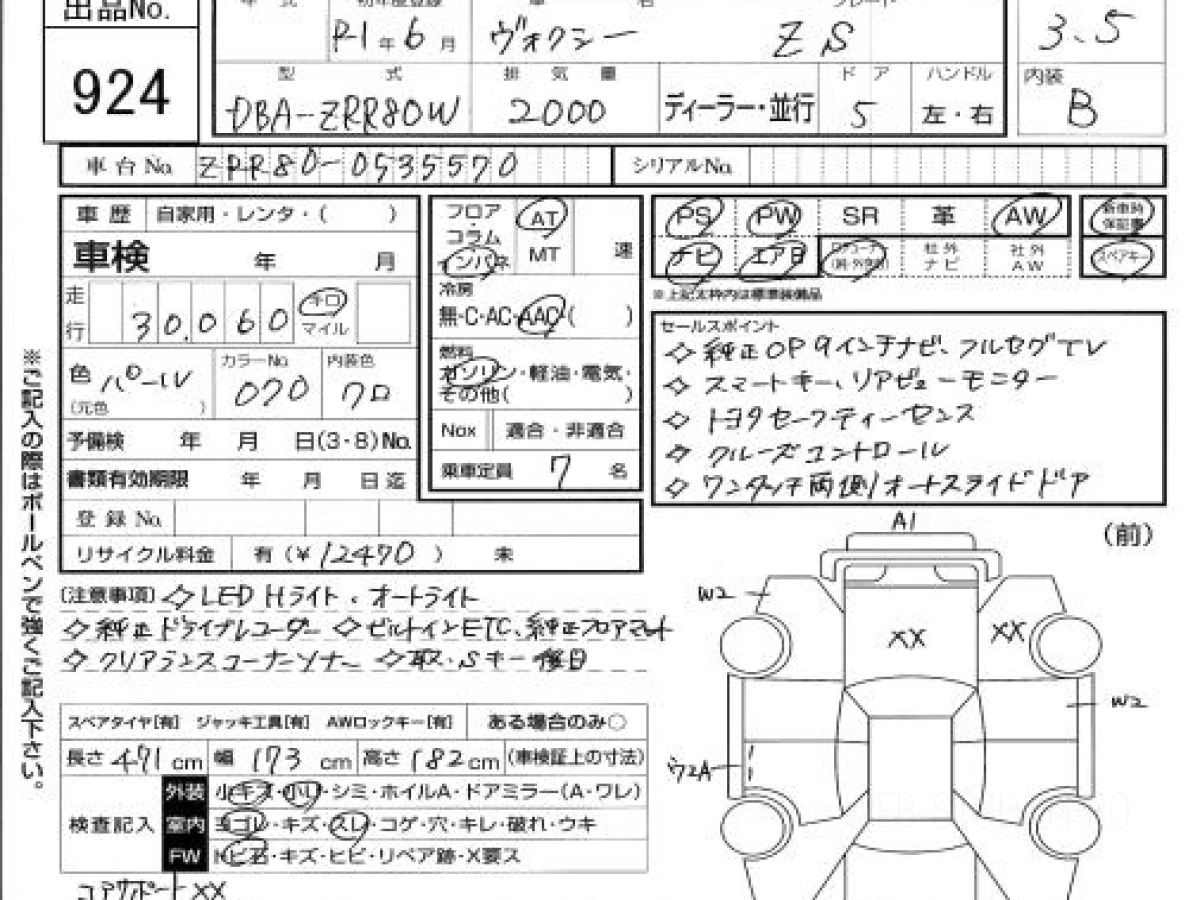 出品No.
924
年 式 初年度登録 車 名 グレード
R1年6月 ヴォクシー ZS 3.5
型 式 排 気 量 ド ア ハンドル 内装
DBA-ZRR80W 2000 ディーラー・並行 5 左・右 B
車台No. ZRR80-0535570 シリアルNo.
車 歴 自家用・レンタ・( )
車検 年 月
走行 30,060 キロ マイル
色 パール カラーNo. 070 内装色 クロ
(元色 )
予備検 年 月 日(3・8)No.
書類有効期限 年 月 日迄
登録No.
リサイクル料金 有(¥12470)未
フロア・コラム インパネ AT MT 速
冷房
無・C・AC・AAC・( )
燃料
ガソリン・軽油・電気・
その他( )
Nox 適合・非適合
乗車定員 7 名
PS PW SR 革 AW 新車時保証書
ナビ エアB 社外ナビ 社外AW スペアキー
※上記太枠内は標準装備品
セールスポイント
◇純正OP9インチナビ、フルセグTV
◇スマートキー、リアビューモニター
◇トヨタセーフティーセンス
◇クルーズコントロール
◇ワンタッチ両側オートスライドドア
[注意事項]◇LED Hライト・オートライト
◇純正ドライブレコーダー ◇ビルトインETC、純正フロアマット
◇クリアランスコーナーソナー ◇取・Sキー後日
スペアタイヤ[有] ジャッキ工具[有] AWロックキー[有] ある場合のみ○
長さ 471cm 幅 173cm 高さ 182cm (車検証上の寸法)
検査記入
外装 小キズ・小凹・シミ・ホイルA・ドアミラー(A・ワレ)
室内 ヨゴレ・キズ・スレ・コゲ・穴・キレ・破れ・ウキ
FW トビ石・キズ・ヒビ・リペア跡・X要ス
コアサポートXX
※ご記入の際はボールペンで強くご記入下さい。
(前)
A1
W2
XX
XX
W2
ウ2A